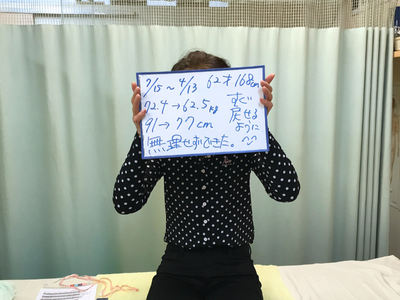 7/15～4/13 62才 168cm
72.4→62.5kg
91→77cm
無理せずできた。
すぐ
戻せる
ように